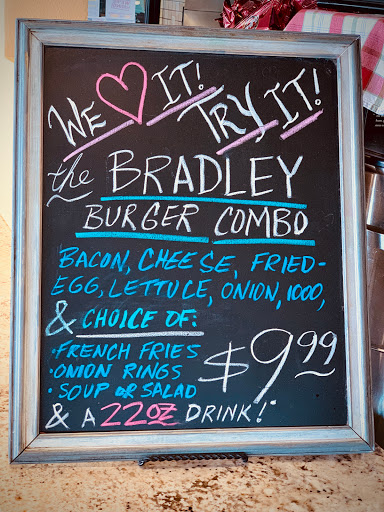 WE ♡ IT! TRY IT!
the BRADLEY
BURGER COMBO
BACON, CHEESE, FRIED-
EGG, LETTUCE, ONION, 1000,
& CHOICE OF:
• FRENCH FRIES
• ONION RINGS
• SOUP OR SALAD
$9.99
& A 22oz DRINK!